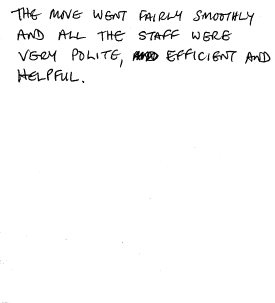 THE MOVE WENT FAIRLY SMOOTHLY
AND ALL THE STAFF WERE
VERY POLITE, EFFICIENT AND
HELPFUL.